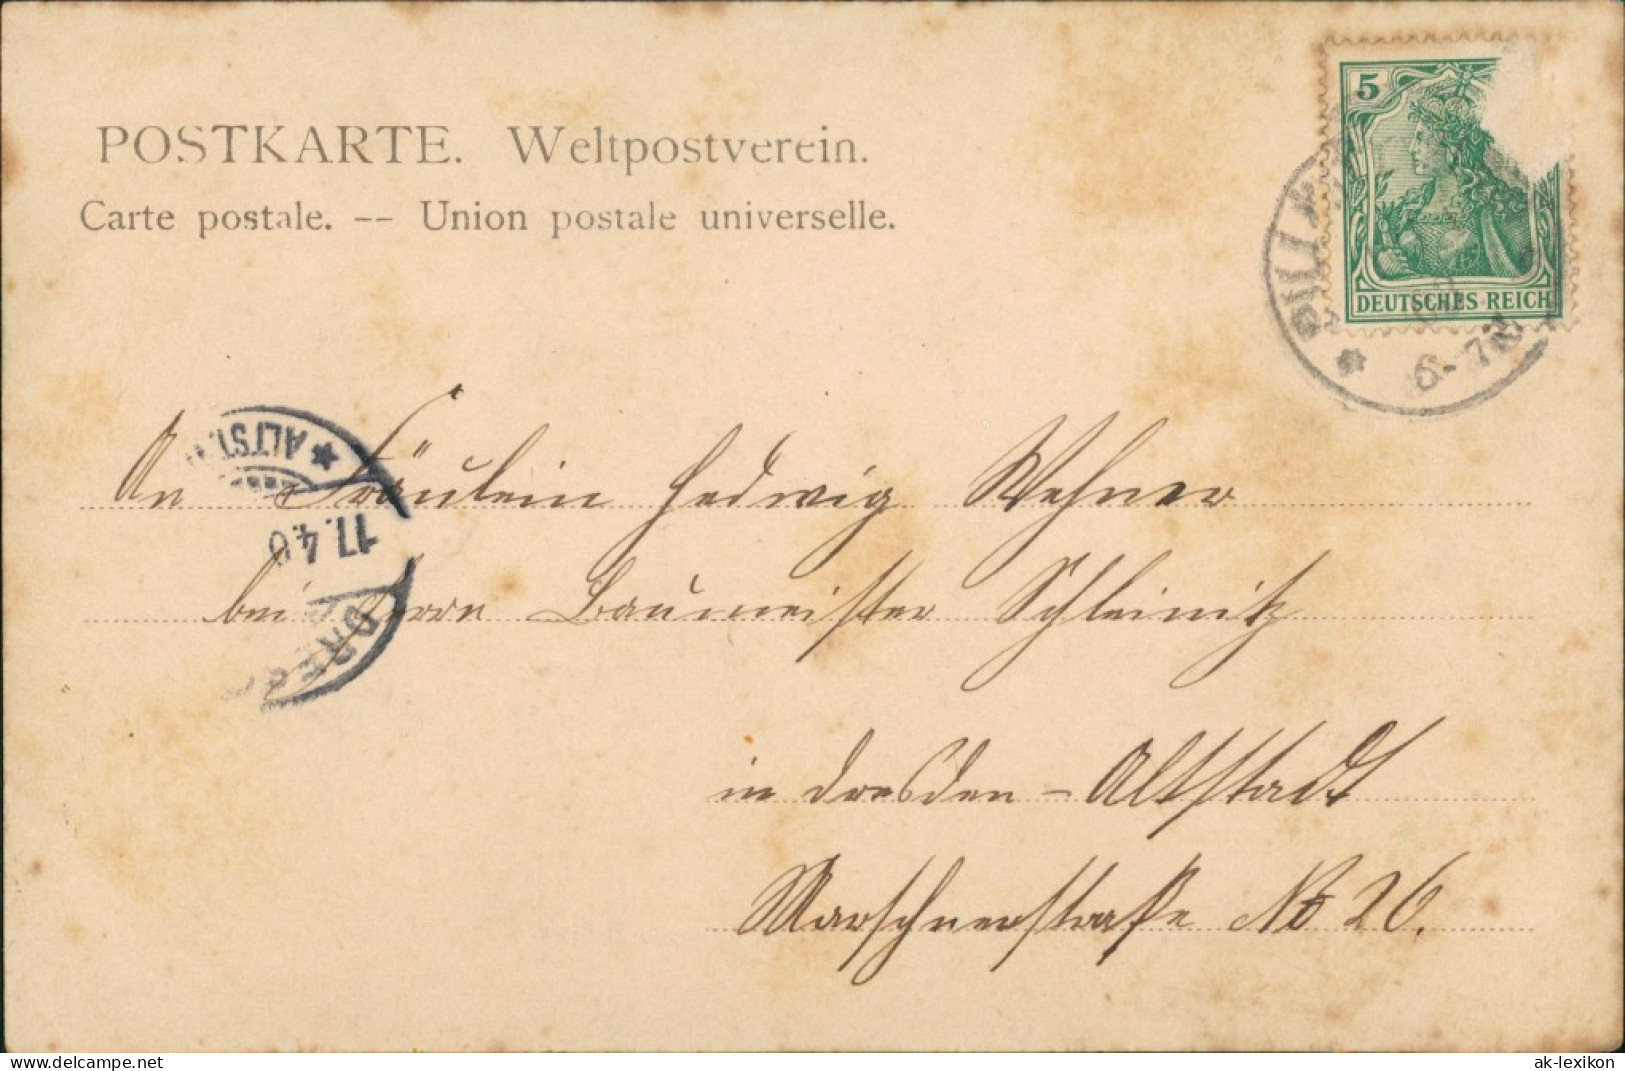 POSTKARTE. Weltpostverein.
Carte postale. -- Union postale universelle.
5
DEUTSCHES REICH
6-7N
ALTST.
17.4.0
DRES
An Fräulein Hedwig Wehner
bei Herrn Baumeister Schleinitz
in Dresden-Altstadt
Marschnerstraße No 26.
www.delcampe.net
ak-lexikon